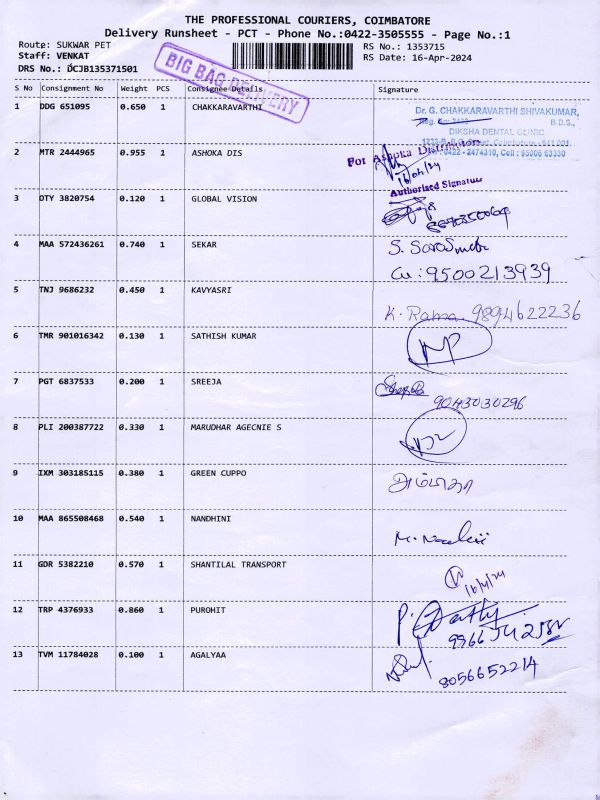 THE PROFESSIONAL COURIERS, COIMBATORE
Delivery Runsheet - PCT - Phone No.:0422-3505555 - Page No.:1
Route: SUKWAR PET
RS No.: 1353715
Staff: VENKAT
RS Date: 16-Apr-2024
DRS No.: DCJB135371501
BIG BAG DELIVERY
S No Consignment No Weight PCS Consignee Details Signature
1 DDG 651095 0.650 1 CHAKKARAVARTHI
Dr. G. CHAKKARAVARTHI SHIVAKUMAR,
B.D.S.,
DIKSHA DENTAL CLINIC
2474310, Cell : 95006 63330
2 MTR 2444965 0.955 1 ASHOKA DIS
For Ashoka Distribution
16/04/24
Authorised Signature
3 DTY 3820754 0.120 1 GLOBAL VISION
4 MAA 572436261 0.740 1 SEKAR
Cu: 9500213939
5 TNJ 9686232 0.450 1 KAVYASRI
K. Rama. 9894622236
6 TMR 901016342 0.130 1 SATHISH KUMAR
7 PGT 6837533 0.200 1 SREEJA
9043030296
8 PLI 200387722 0.330 1 MARUDHAR AGECNIE S
9 IXM 303185115 0.380 1 GREEN CUPPO
10 MAA 865508468 0.540 1 NANDHINI
11 GDR 5382210 0.570 1 SHANTILAL TRANSPORT
16/4/24
12 TRP 4376933 0.860 1 PUROHIT
13 TVM 11784028 0.100 1 AGALYAA
8056652214